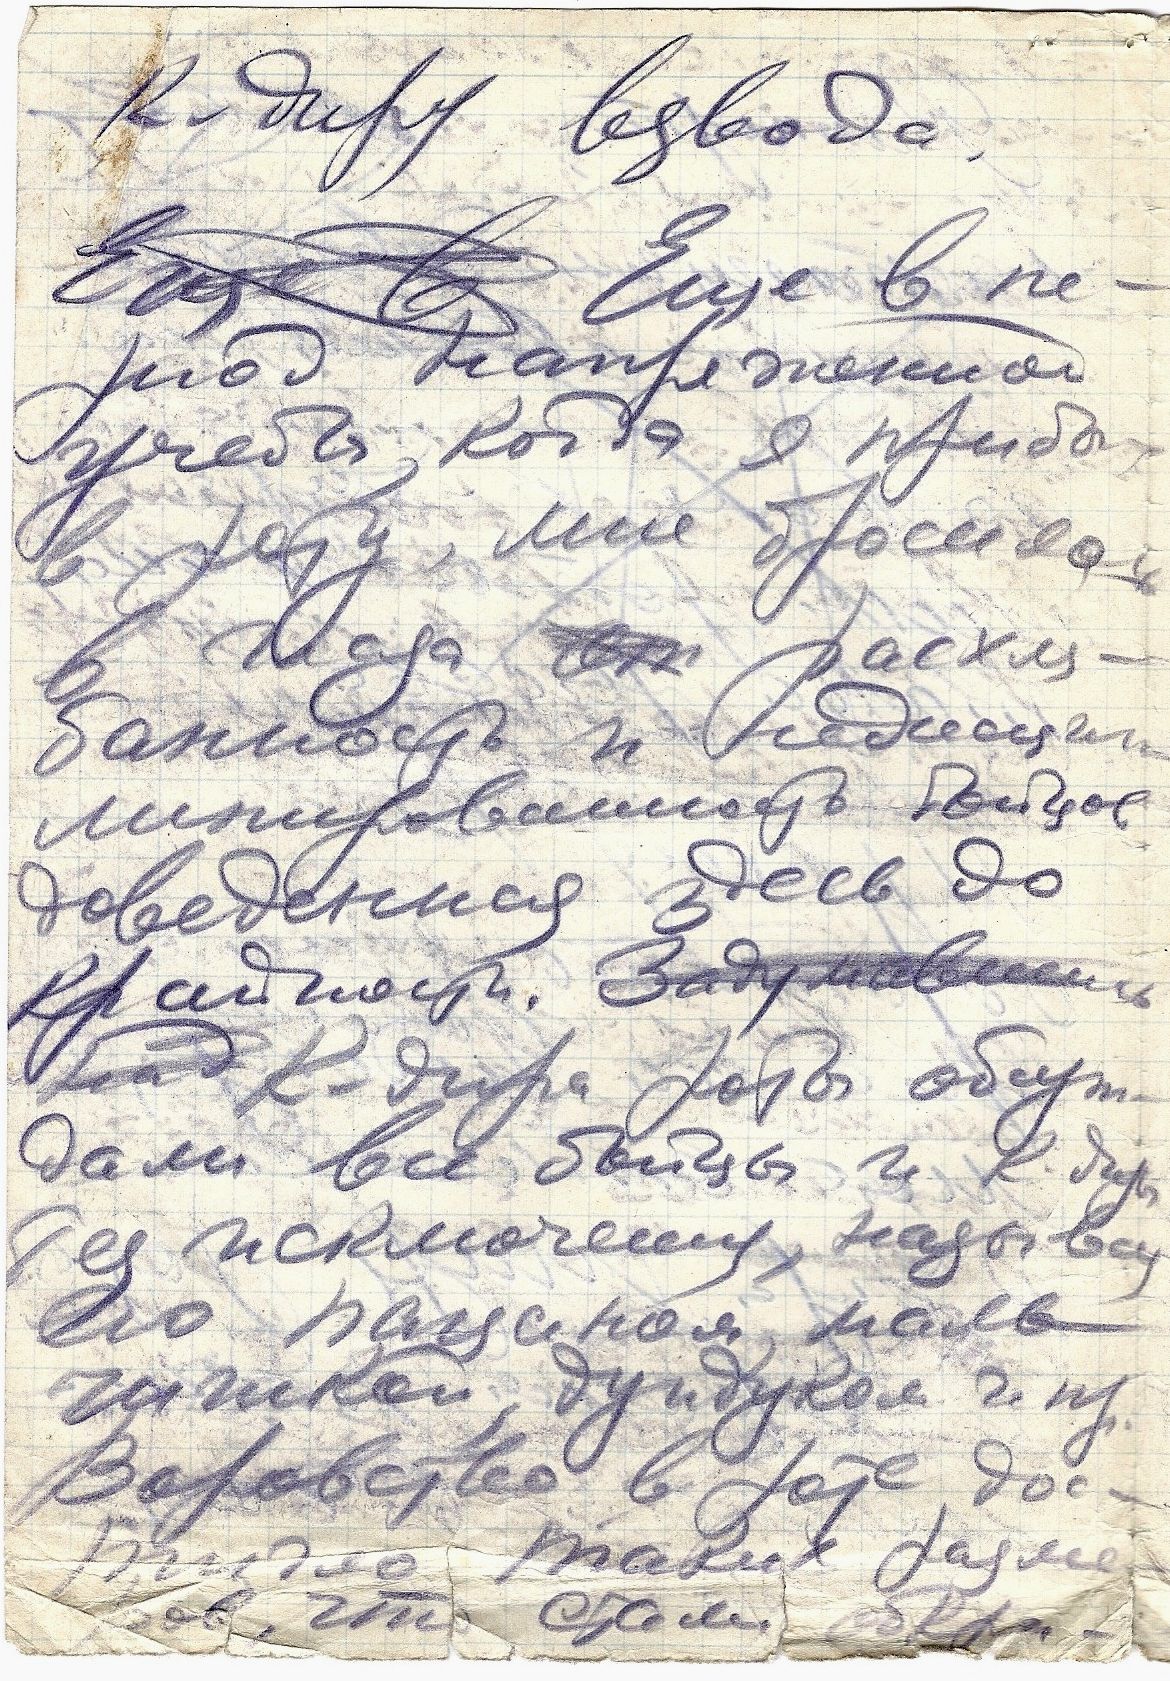 К-диру взвода.
Еще в Еще в пе-
риод напряженной
учебы, когда я прибыл
в роту, мне бросилась
в глаза расхля-
банность и недисцип
линированность бойцов
доведенная здесь до
крайности. Задумавшись
над К-дира роты обсуж-
дали все бойцы и к-диры
без исключения, называя
его пацаном, маль-
чишкой, дундуком и пр.
Воровство в роте дос-
тигло таких разме
ров, что стали обкра-